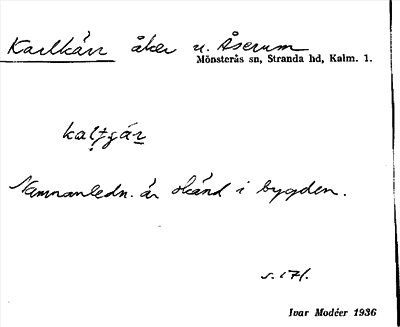 Karlkärr åker u. Åserum
Mönsterås sn, Stranda hd, Kalm. 1.
Namnanledn. är okänd i bygden.
s. 171.
Ivar Modéer 1936